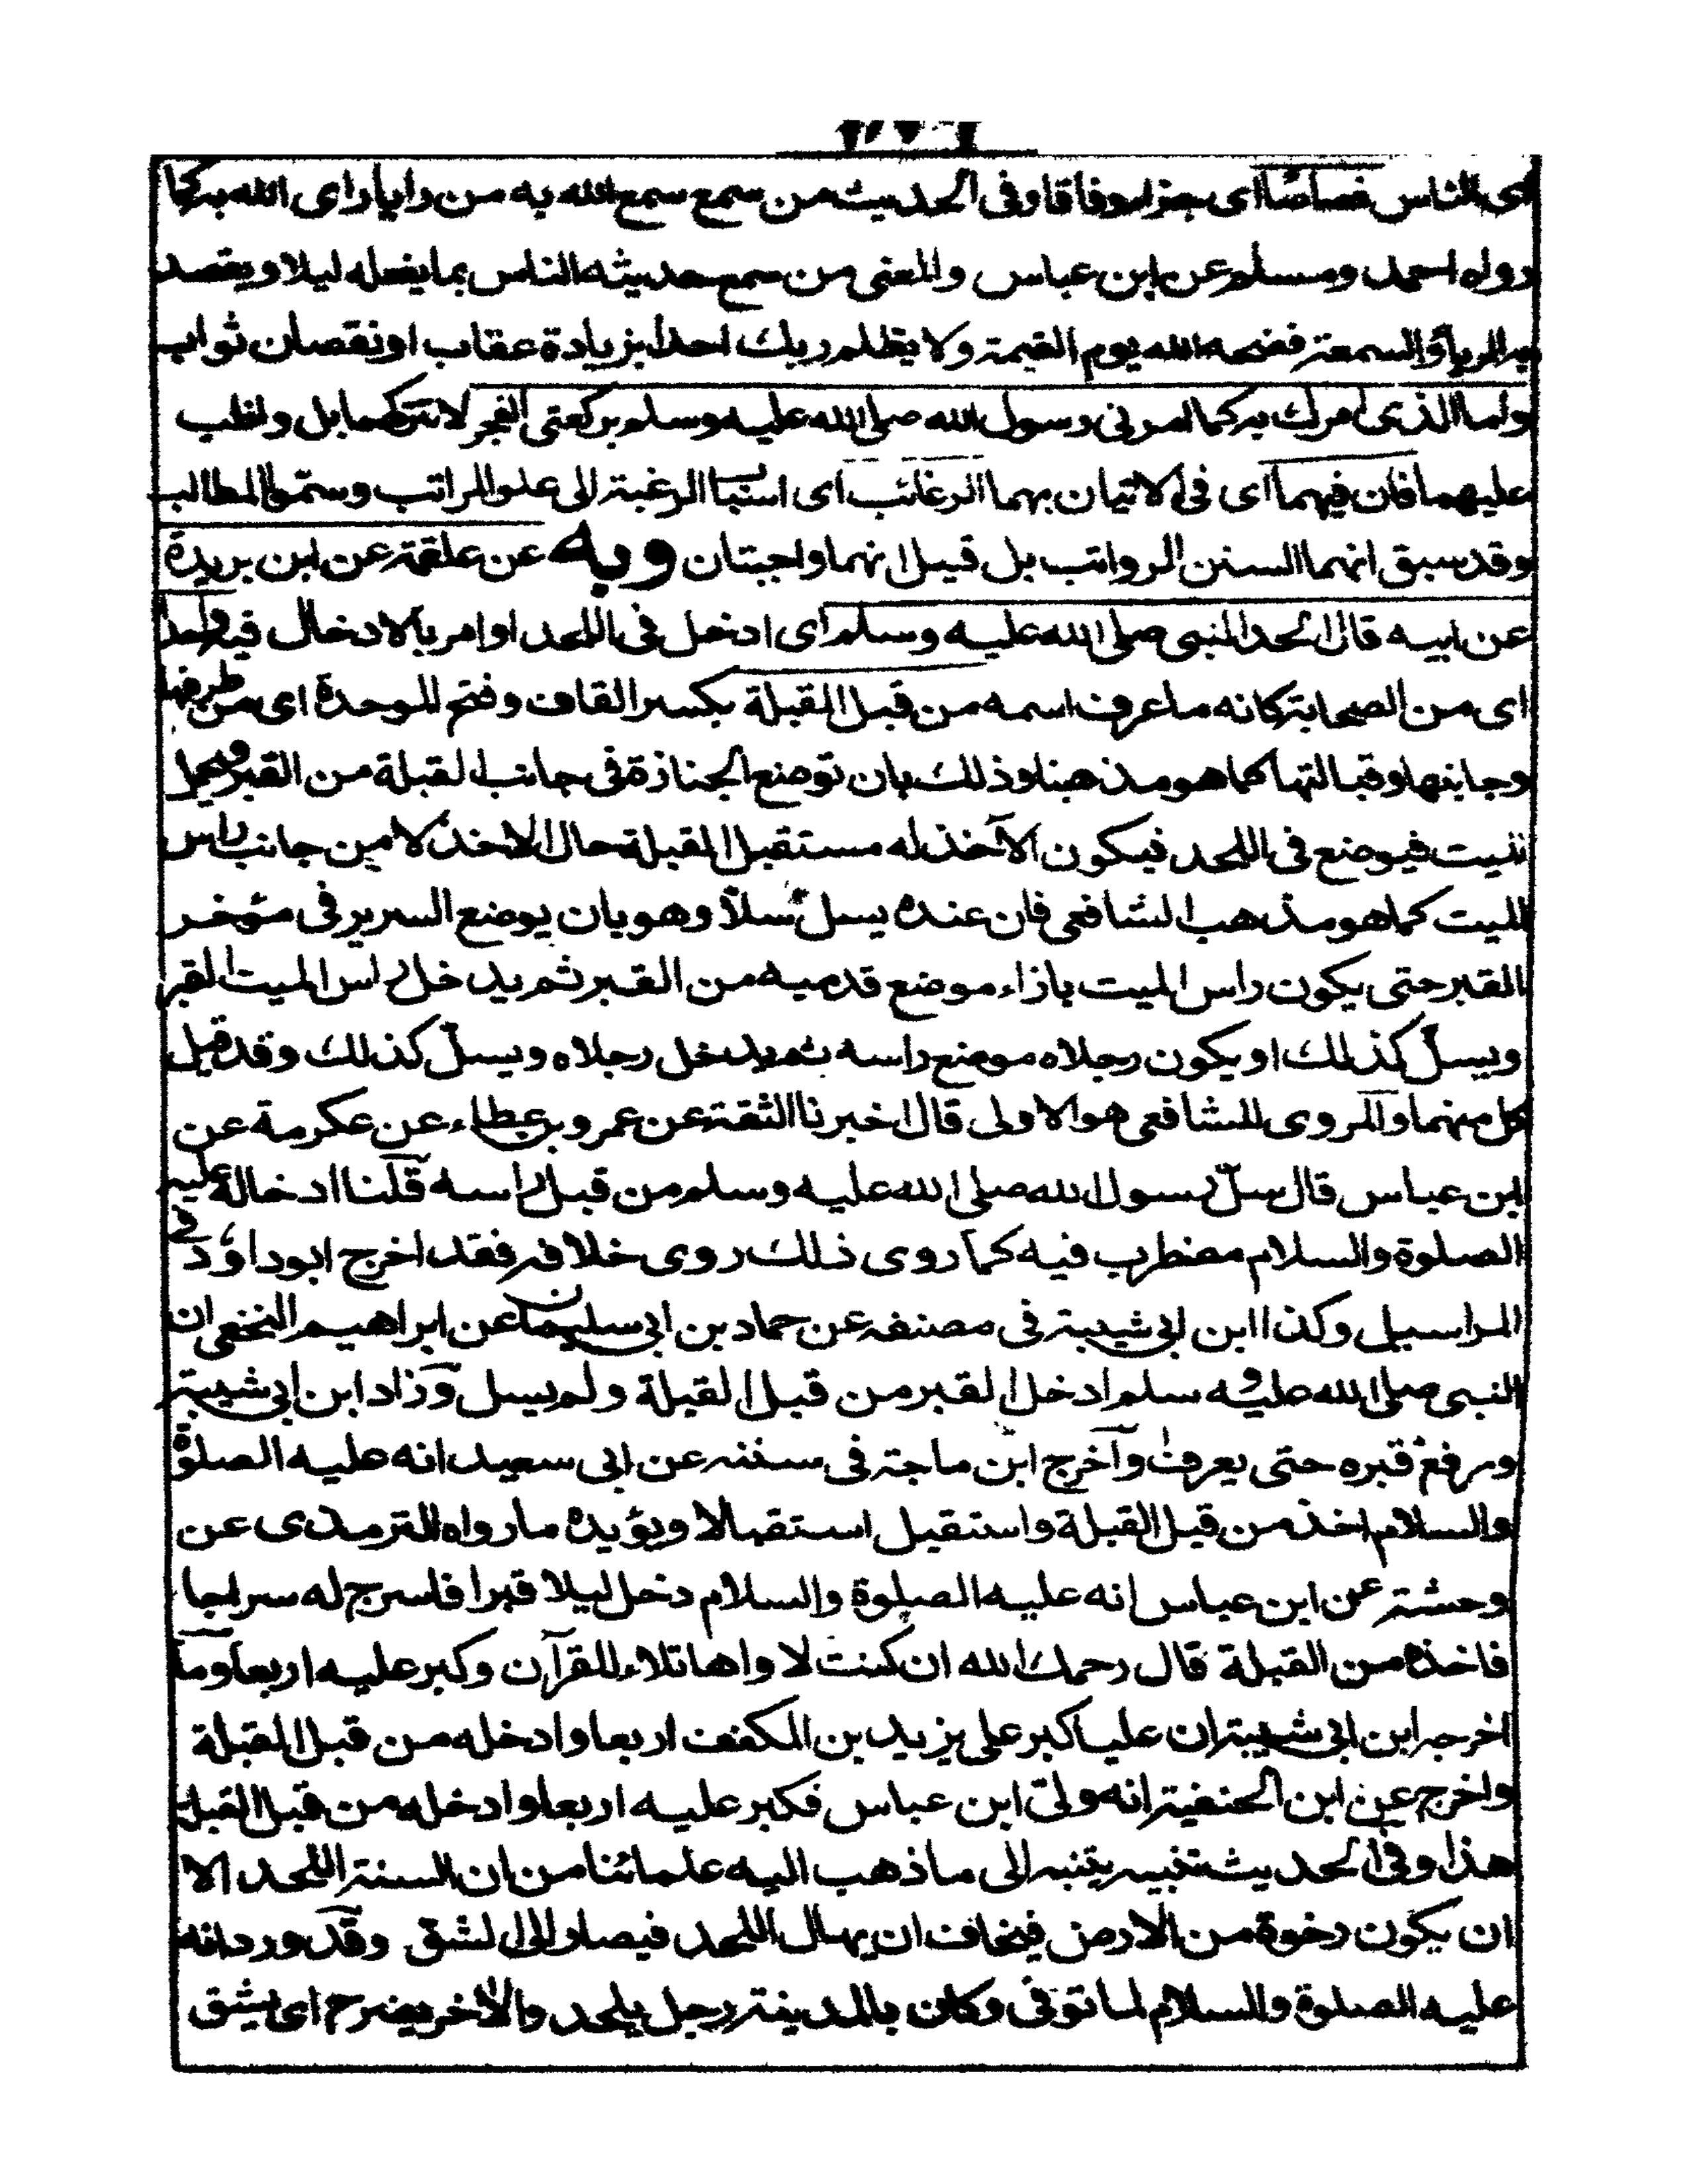 اى الناس قصاصا اى جزاء وفاقا وفى الحديث من سمع سمع الله به من رايا راى الله به كما
رواه احمد ومسلم عن ابن عباس والمعنى من سمع حديثه الناس بما يفعله ليلا ويقصد
به الرياء والسمعة فضحه الله يوم القيمة ولا يظلم ربك احدا بزيادة عقاب او نقصان ثواب
واما الذى امرك به كما امرنى رسول الله صلى الله عليه وسلم بركعتى الفجر لا تتركهما بل واظب
عليهما فان فيهما اى فى الاتيان بهما الرغائب اى اسباب الرغبة الى علو المراتب وسمو المطالب
وقد سبق انهما السنن الرواتب بل قيل انهما واجبتان وبه عن علقمة عن ابن بريدة
عن ابيه قال الحد النبى صلى الله عليه وسلم اى ادخل فى اللحد او امر بالادخال فيه واخذ
اى من الصحابة كانه ما عرف اسمه من قبل القبلة بكسر القاف وفتح الموحدة اى من طرفها
وجانبها وقبالتها كما هو مذهبنا وذلك بان توضع الجنازة فى جانب القبلة من القبر ويحمل
الميت فيوضع فى اللحد فيكون الآخذ له مستقبل القبلة حال الاخذ لا من جانب راس
الميت كما هو مذهب الشافعى فان عنده يسل سلا وهو بان يوضع السرير فى مؤخر
القبر حتى يكون راس الميت بازاء موضع قدميه من القبر ثم يدخل راس الميت القبر
ويسل كذلك او يكون رجلاه موضع راسه ثم يدخل رجلاه ويسل كذلك وقد قيل
كل منهما والمروى للشافعى هو الاولى قال اخبرنا الثقة عن عمرو بن عطاء عن عكرمة عن
ابن عباس قال سل رسول الله صلى الله عليه وسلم من قبل راسه قلنا ادخاله عليه
الصلوة والسلام مضطرب فيه كما روى ذلك روى خلافه فقد اخرج ابو داود فى
المراسيل وكذا ابن ابى شيبة فى مصنفه عن حماد بن ابى سليمان عن ابراهيم النخعى ان
النبى صلى الله عليه وسلم ادخل القبر من قبل القبلة ولم يسل وزاد ابن ابى شيبة
ورفع قبره حتى يعرف واخرج ابن ماجة فى سننه عن ابى سعيد انه عليه الصلوة
والسلام اخذ من قبل القبلة واستقبل استقبالا ويؤيده ما رواه الترمذى عن
وحشة عن ابن عباس انه عليه الصلوة والسلام دخل ليلا قبرا فاسرج له سراجا
فاخذه من القبلة قال رحمك الله ان كنت لاواها تلاء للقرآن وكبر عليه اربعا وما
اخرجه ابن ابى شيبة ان عليا كبر على يزيد بن المكفف اربعا وادخله من قبل القبلة
واخرج عن ابن الحنفية انه ولى ابن عباس فكبر عليه اربعا وادخله من قبل القبلة
هذا وفى الحديث تنبيه يتنبه الى ما ذهب اليه علمائنا من ان السنة اللحد الا
ان يكون رخوة من الارض فيخاف ان يهال اللحد فيصار الى الشق وقد ورد انه
عليه الصلوة والسلام لما توفى وكان بالمدينة رجل يلحد والآخر يضرح اى يشق